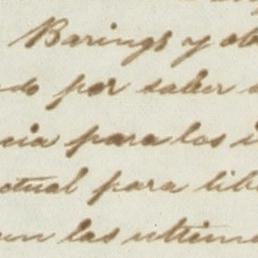 Barings y ot
do por saber
cia para los
ctual para lib
un las ultim